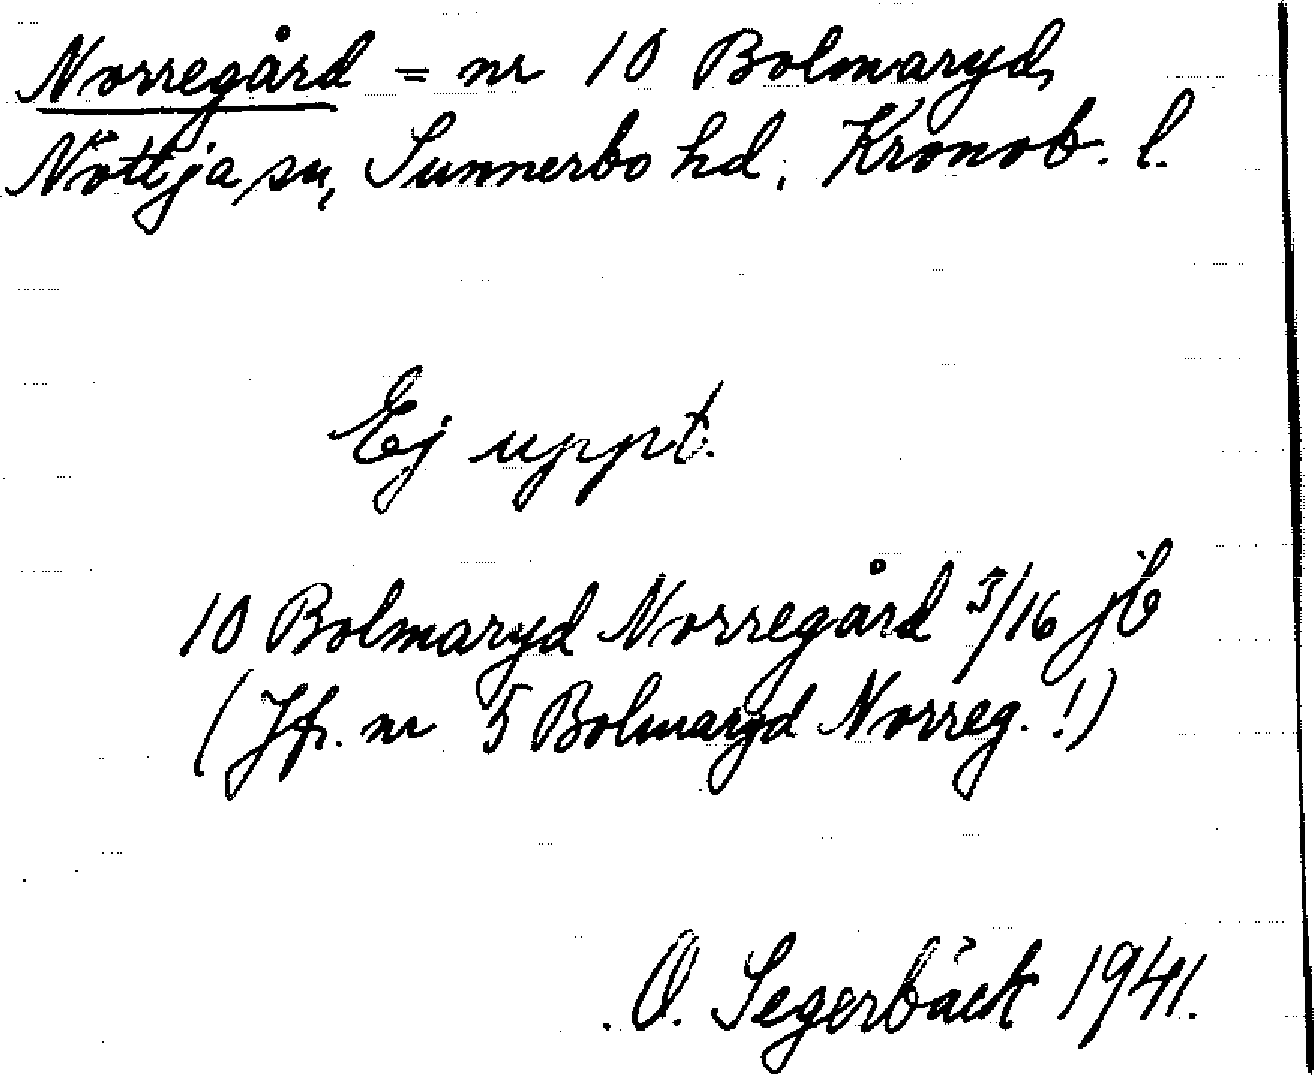 Norregård = nr 10 Bolmaryd,
Nöttja sn, Sunnerbo hd, Kronob. l.
Ej uppt.
10 Bolmaryd Norregård 3/16 jb
(Jfr. nr 5 Bolmaryd Norreg. !)
O. Segerbäck 1941.